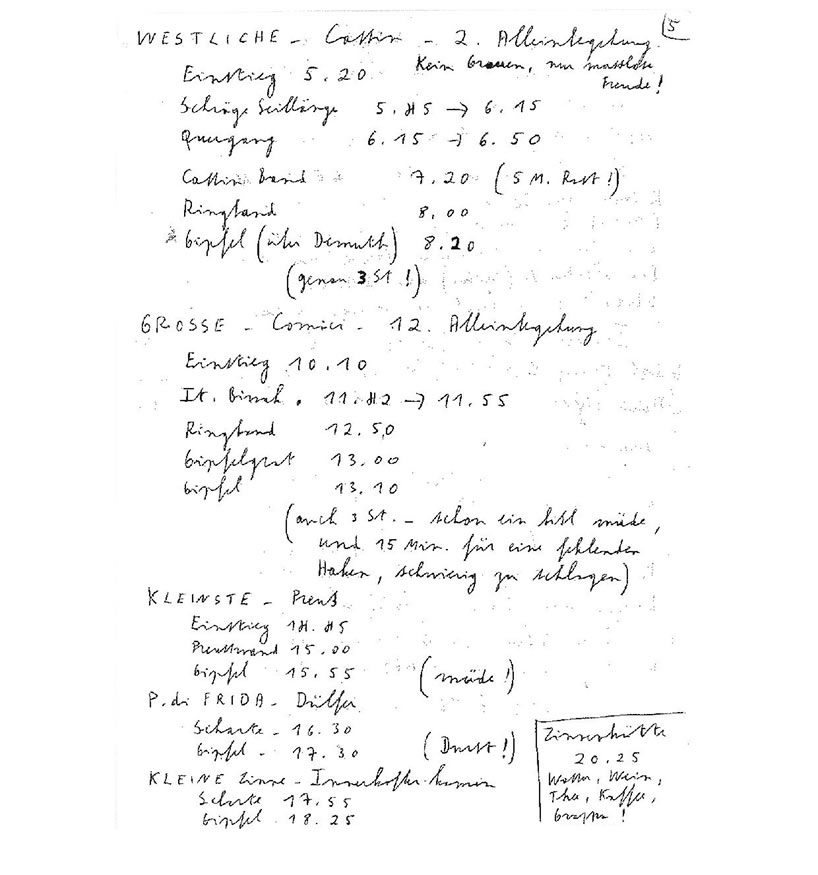 5
WESTLICHE - Cassin - 2. Alleinbegehung
Kein Grauen, nur masslose
Freude!
Einstieg 5.20
Schräge Seillänge 5.45 → 6.15
Quergang 6.15 → 6.50
Cassin Band 7.20 (5 M. Rast!)
Ringband 8.00
Gipfel (über Demuth) 8.20
(genau 3 St!)
GROSSE - Comici - 12. Alleinbegehung
Einstieg 10.10
It. Biwak. 11.42 → 11.55
Ringband 12.50
Gipfelgrat 13.00
Gipfel 13.10
(auch 3 St. - schon ein bissl müde,
und 15 Min. für eine fehlenden
Haken, schwierig zu schlagen)
KLEINSTE - Preuß
Einstieg 14.45
Preusswand 15.00
Gipfel 15.55 (müde!)
P. di FRIDA - Dülfer
Scharte - 16.30
Gipfel - 17.30 (Durst!)
KLEINE Zinne - Innerkofler-kamin
Scharte 17.55
Gipfel 18.25
Zinnenhütte
20.25
Wasser, Wein,
Thee, Kaffee,
Grappa!